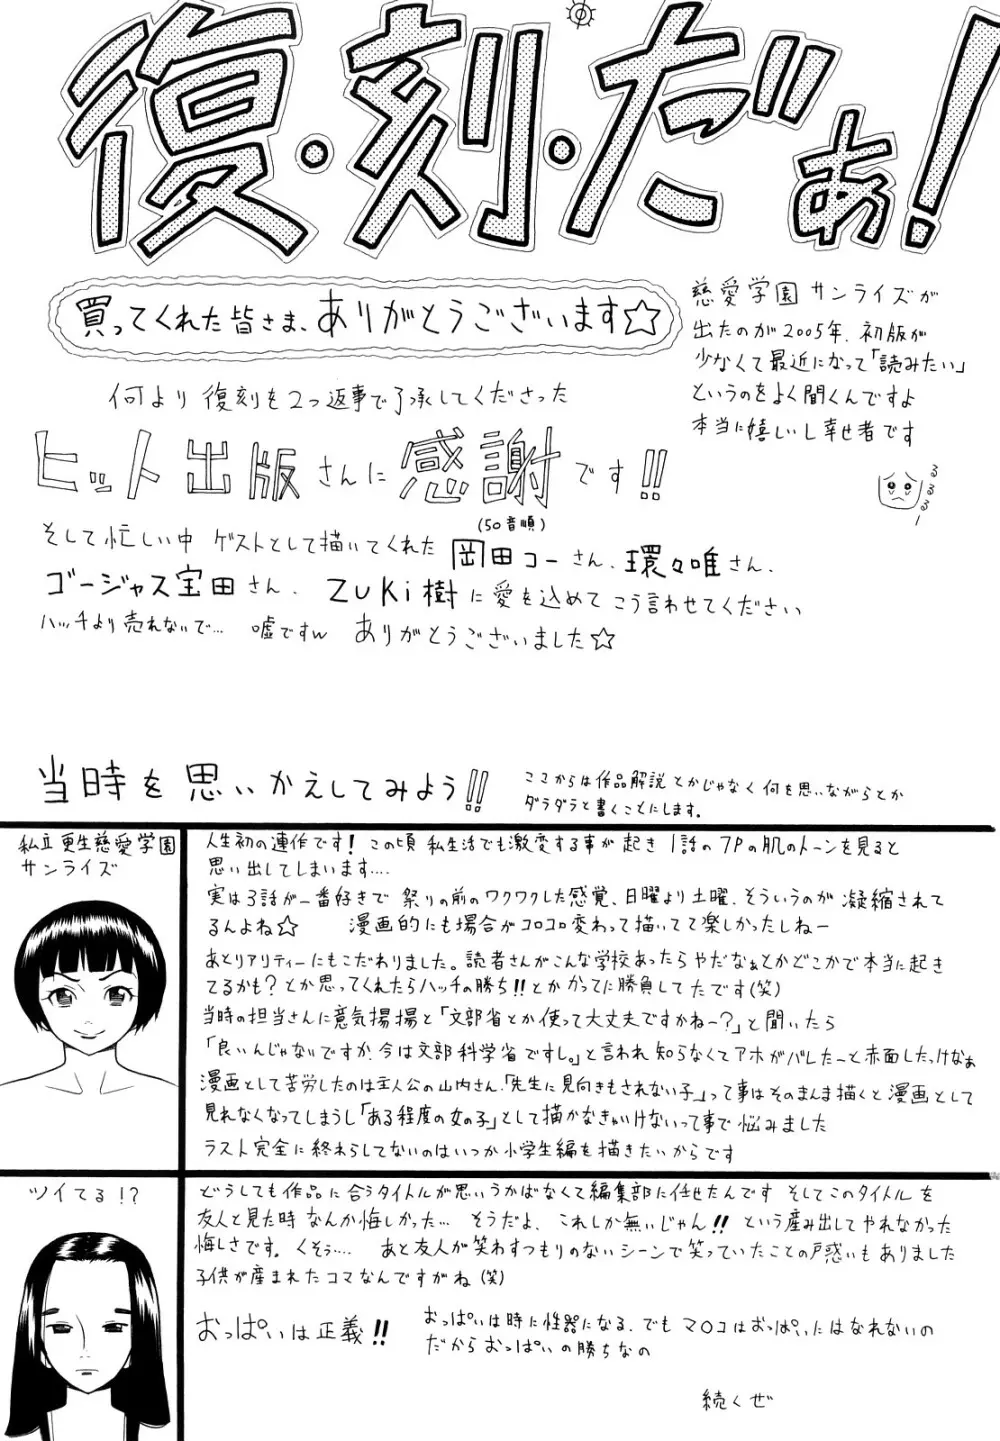 復・刻・だぁ!
買ってくれた皆さま、ありがとうございます☆
慈愛学園サンライズが
出たのが2005年、初版が
少なくて最近になって「読みたい」
というのをよく聞くんですよ
本当に嬉しいし幸せ者です
るるるー
何より復刻を2つ返事で了承してくださった
ヒット出版さんに感謝です!!
(50音順)
そして忙しい中 ゲストとして描いてくれた 岡田コーさん、環々唯さん、
ゴージャス宝田さん、 ZUKI樹に愛を込めてこう言わせてください
ハッチより売れないで… 嘘ですw ありがとうございました☆
当時を思いかえしてみよう!!
ここからは作品解説とかじゃなく何を思いながらとか
ダラダラと書くことにします。
私立更生慈愛学園
サンライズ
人生初の連作です! この頃 私生活でも激変する事が起き 1話の7Pの肌のトーンを見ると
思い出してしまいます….
実は3話が一番好きで 祭りの前のワクワクした感覚、日曜より土曜、そういうのが 凝縮されて
るんよね☆ 漫画的にも場合がコロコロ変わって描いてて楽しかったしねー
あとリアリティーにもこだわりました。読者さんがこんな学校あったらやだなぁとかどこかで本当に起き
てるかも?とか思ってくれたらハッチの勝ち!!とか かってに勝負してたです(笑)
当時の担当さんに意気揚揚と「文部省とか使って大丈夫ですかねー?」と聞いたら
「良いんじゃないですか、今は文部科学省ですし。」と言われ 知らなくてアホがバレたーと赤面したっけなぁ
漫画として苦労したのは主人公の山内さん、「先生に見向きもされない子」って事はそのまんま描くと漫画として
見れなくなってしまうし「ある程度の女の子」として描かなきゃいけないって事で悩みました
ラスト完全に終わらしてないのはいつか小学生編を描きたいからです
ツイてる!?
どうしても作品に合うタイトルが思いうかばなくて編集部に任せたんです そしてこのタイトルを
友人と見た時 なんか悔しかった… そうだよ、これしか無いじゃん!! という産み出してやれなかった
悔しさです。くそぅ…. あと友人が笑わすつもりのないシーンで笑っていたことの戸惑いもありました
子供が産まれたコマなんですがね(笑)
おっぱいは正義!!
おっぱいは時に性器になる、でも マ○コはおっぱいにはなれないの
だからおっぱいの勝ちなの
続くぜ